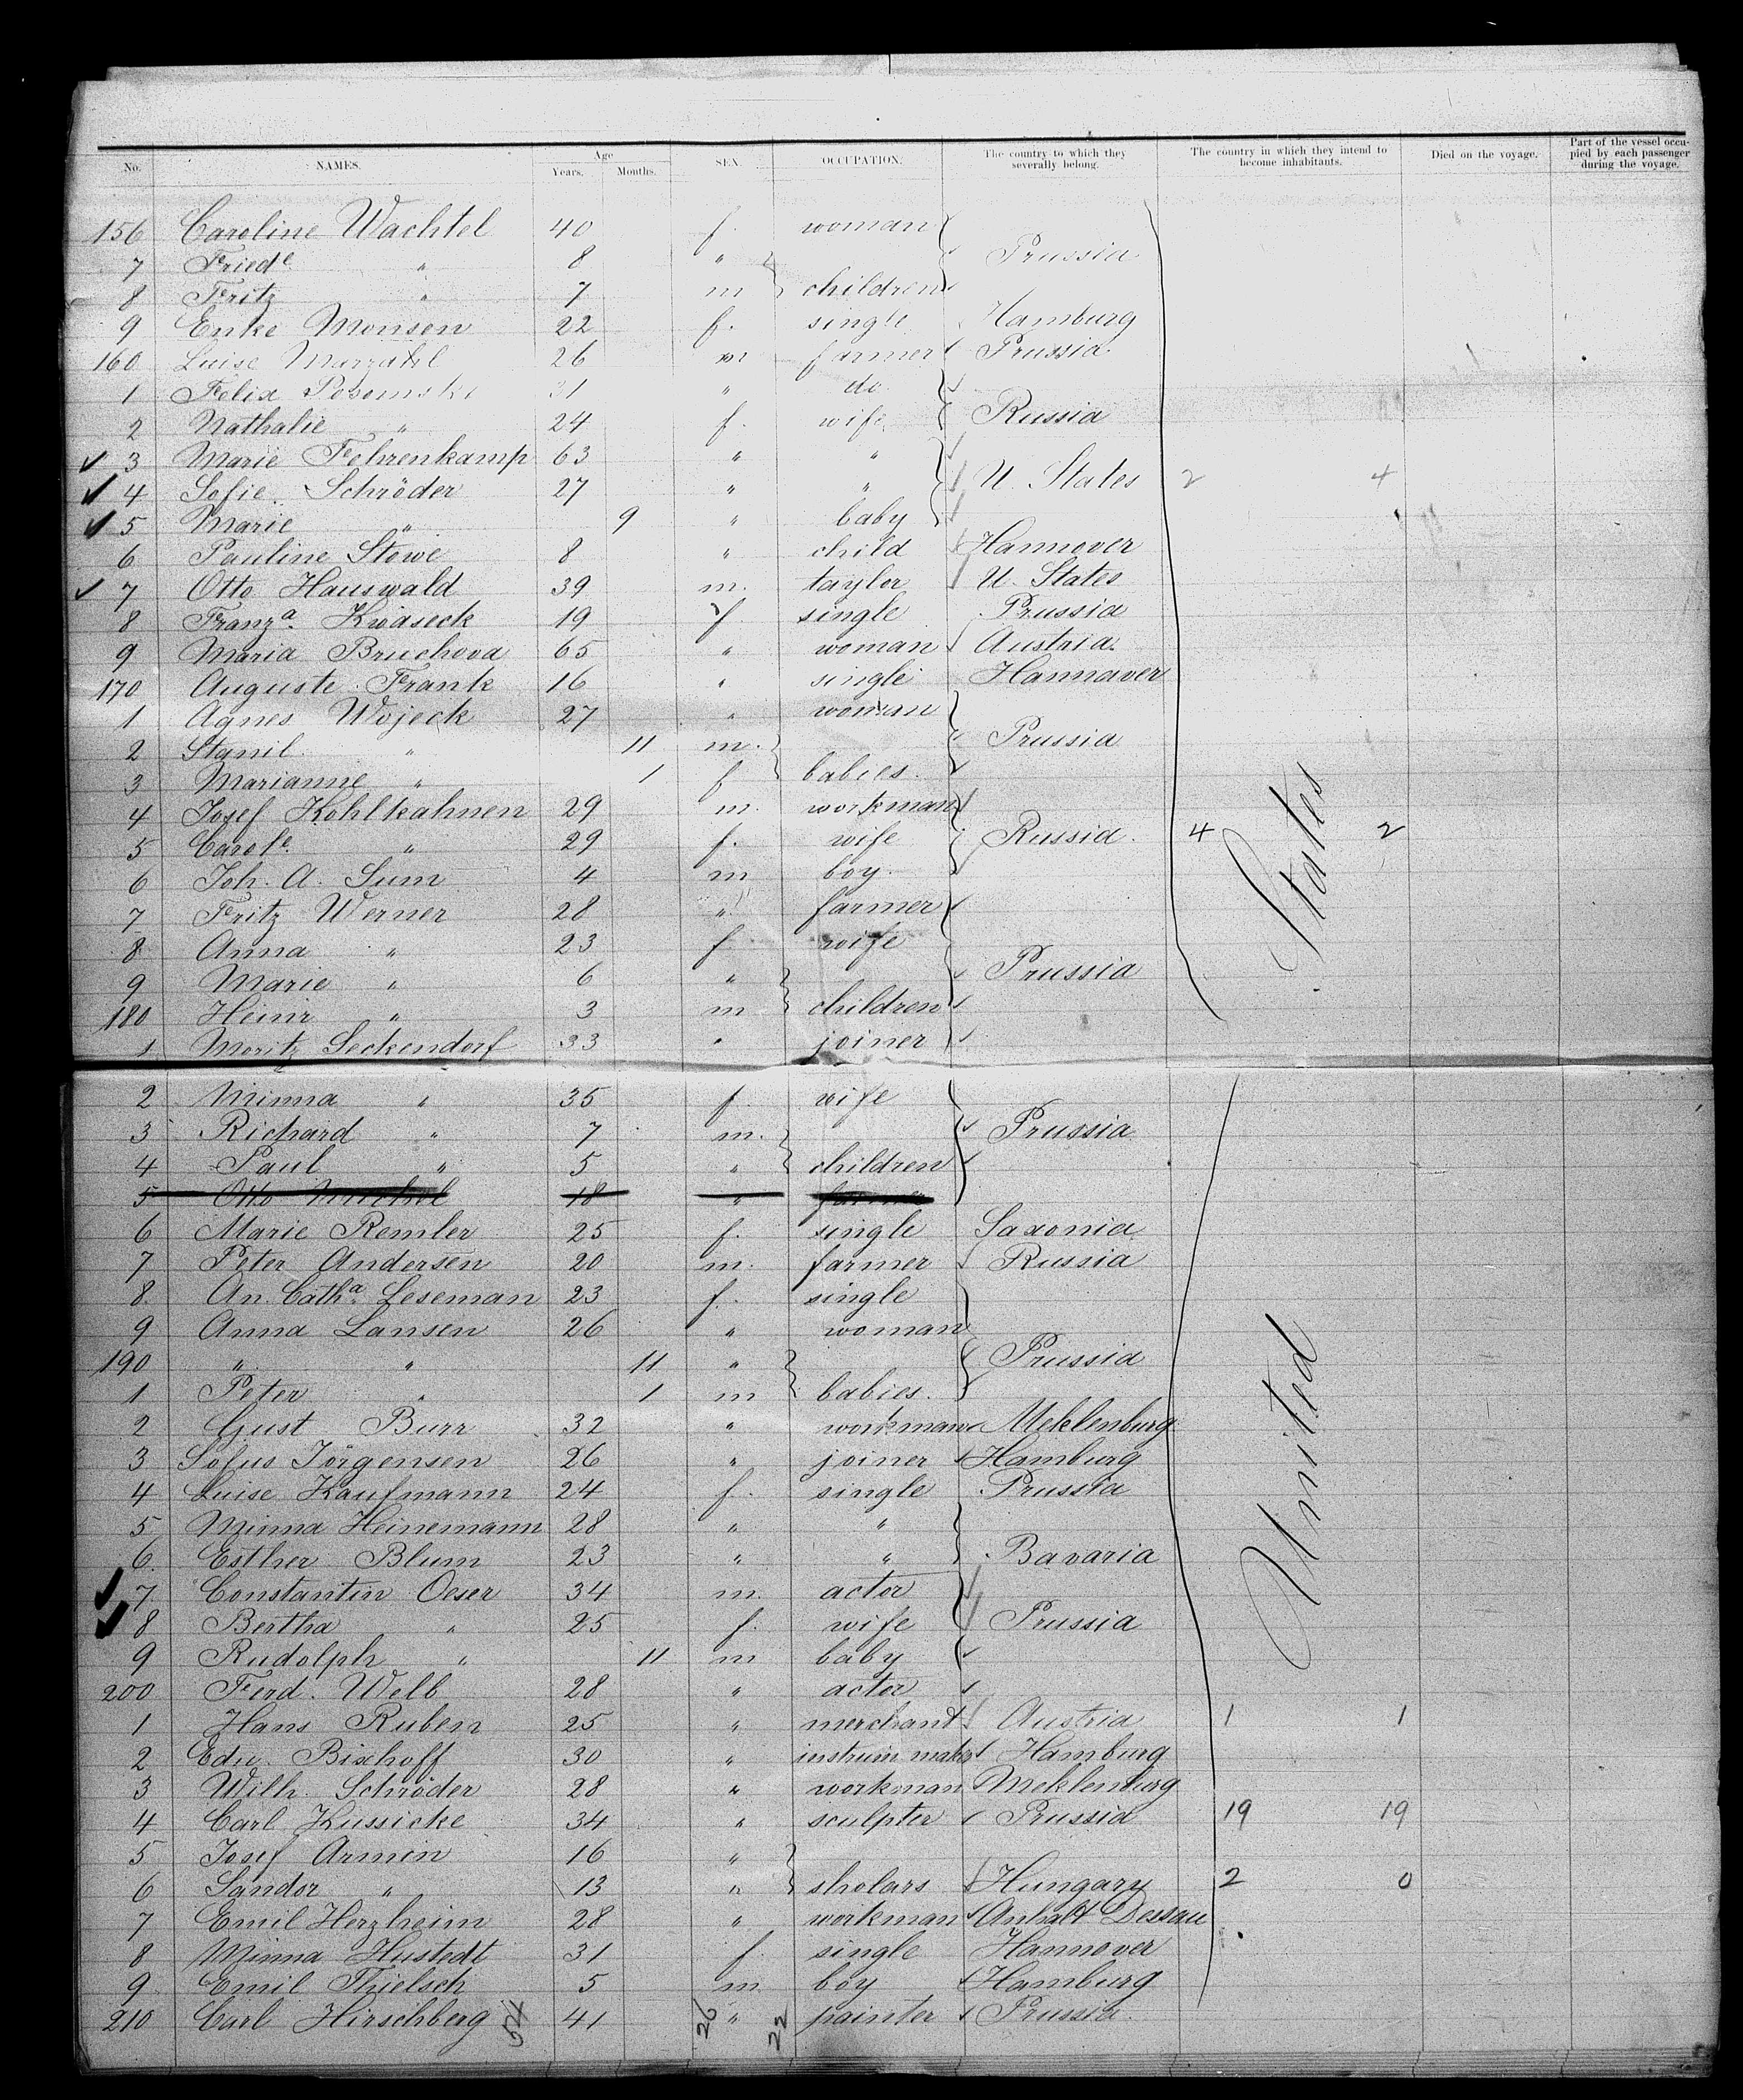 No. NAMES. Age Years. Months. SEX. OCCUPATION. The country to which they severally belong. The country in which they intend to become inhabitants. Died on the voyage. Part of the vessel occupied by each passenger during the voyage.
156 Caroline Wachtel 40 f. woman
7 Friede " 8 " Prussia
8 Fritz " 7 m children
9 Enke Monsen 22 f. single Hamburg
160 Luise Marzahl 26 m farmer Prussia
1 Felix Posomski 31 " do
2 Nathalie " 24 f. wife Russia
3 Marie Fehrenkamp 63 " "
4 Sofie Schröder 27 " " U. States 2 4
5 Marie " 9 " baby
6 Pauline Stowe 8 " child Hannover
7 Otto Hauswald 39 m. taylor U. States
8 Franza. Kwaseck 19 f single Prussia
9 Maria Bruchova 65 " woman Austria
170 Auguste Frank 16 " single Hannaver
1 Agnes Wojeck 27 " woman
2 Stanil " 11 m. Prussia
3 Marianne " 1 f babies.
4 Josef Kohlkahnen 29 m. workman
5 Carole. " 29 f. wife Russia. 4 2
6 Joh. A. Sum 4 m boy.
7 Fritz Werner 28 " farmer
8 Anna " 23 f wife
9 Marie " 6 " Prussia
180 Heinr " 3 m children
1 Moritz Seckendorf 33 " joiner
2 Minna " 35 f. wife
3 Richard " 7 m. Prussia
4 Paul " 5 " children
5 Otto 18 " farmer
6 Marie Remler 25 f. single Saxonia
7 Peter Andersen 20 m. farmer Russia
8. An. Catha. Leseman 23 f. single
9 Anna Lansen 26 " woman
190 " " 11 " Prussia
1 Peter " 1 m babies.
2 Gust Burr 32 " workman Meklenburg
3 Sofus Jörgensen 26 " joiner Hamburg
4 Luise Kaufmann 24 f. single Prussia
5 Minna Heinemann 28 " "
6. Esther Blum 23 " " Bavaria
7 Constantin Oeser 34 m. actor
8 Bertha " 25 f. wife Prussia
9 Rudolph " 11 m baby
200 Ferd. Welb 28 " actor
1 Hans Ruben 25 " merchant Austria 1 1
2 Edu. Bischoff 30 " instrum maker Hamburg
3 Wilh. Schröder 28 " workman Meklenburg
4 Carl Kussicke 34 " sculpter Prussia 19 19
5 Josef Armin 16 "
6 Sandor " 13 " sholars Hungary 2 0
7 Emil Herzheim 28 " workman Anhalt Dessau
8 Minna Hustedt 31 f. single Hannover
9 Emil Thielsch 5 m. boy Hamburg
210 Carl Hirschberg 54 41 26 " 22 painter Prussia.
United States